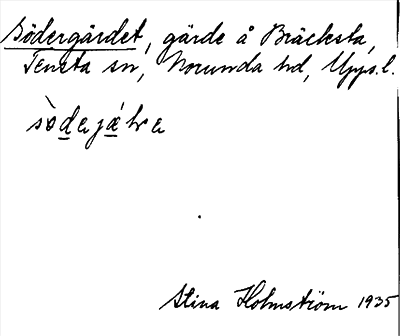 Södergärdet, gärde å Bräcksta,
Tensta sn, Norunda hd, Upps.l.
Stina Holmström 1935